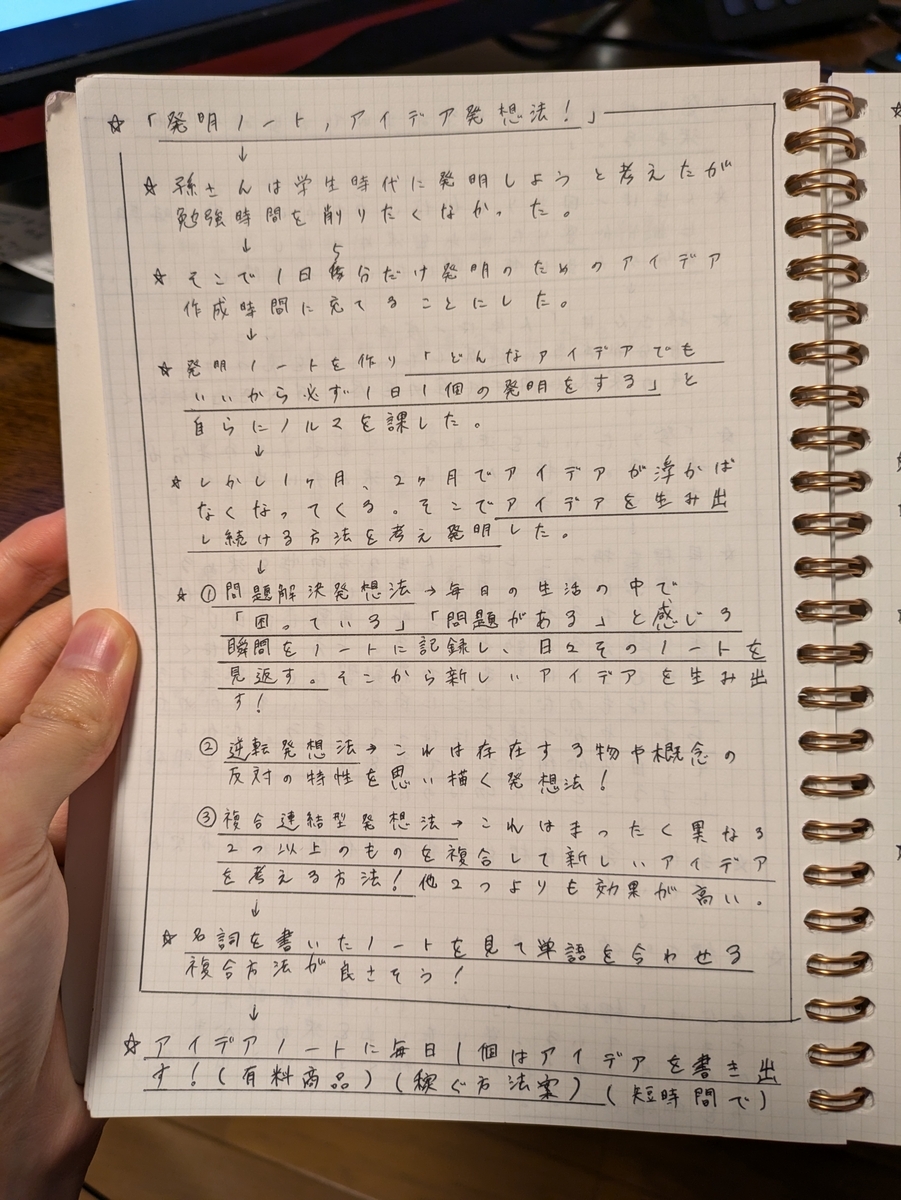 ☆ 「発明ノート,アイデア発想法!」
↓
☆ 孫さんは学生時代に発明しようと考えたが
勉強時間を削りたくなかった。
↓
☆ そこで1日5分だけ発明のためのアイデア
作成時間に充てることにした。
↓
☆ 発明ノートを作り「どんなアイデアでも
いいから必ず1日1個の発明をする」と
自らにノルマを課した。
↓
☆ しかし1ヶ月、2ヶ月でアイデアが浮かば
なくなってくる。そこでアイデアを生み出
し続ける方法を考え発明した。
↓
☆ ①問題解決発想法→毎日の生活の中で
「困っている」「問題がある」と感じる
瞬間をノートに記録し、日々そのノートを
見返す。そこから新しいアイデアを生み出
す!
② 逆転発想法→これは存在する物や概念の
反対の特性を思い描く発想法!
③ 複合連結型発想法→これはまったく異なる
2つ以上のものを複合して新しいアイデア
を考える方法!他2つよりも効果が高い。
↓
☆ 名詞を書いたノートを見て単語を合わせる
複合方法が良さそう!
↓
☆ アイデアノートに毎日1個はアイデアを書き出
す!(有料商品)(稼ぐ方法案)(短時間で)